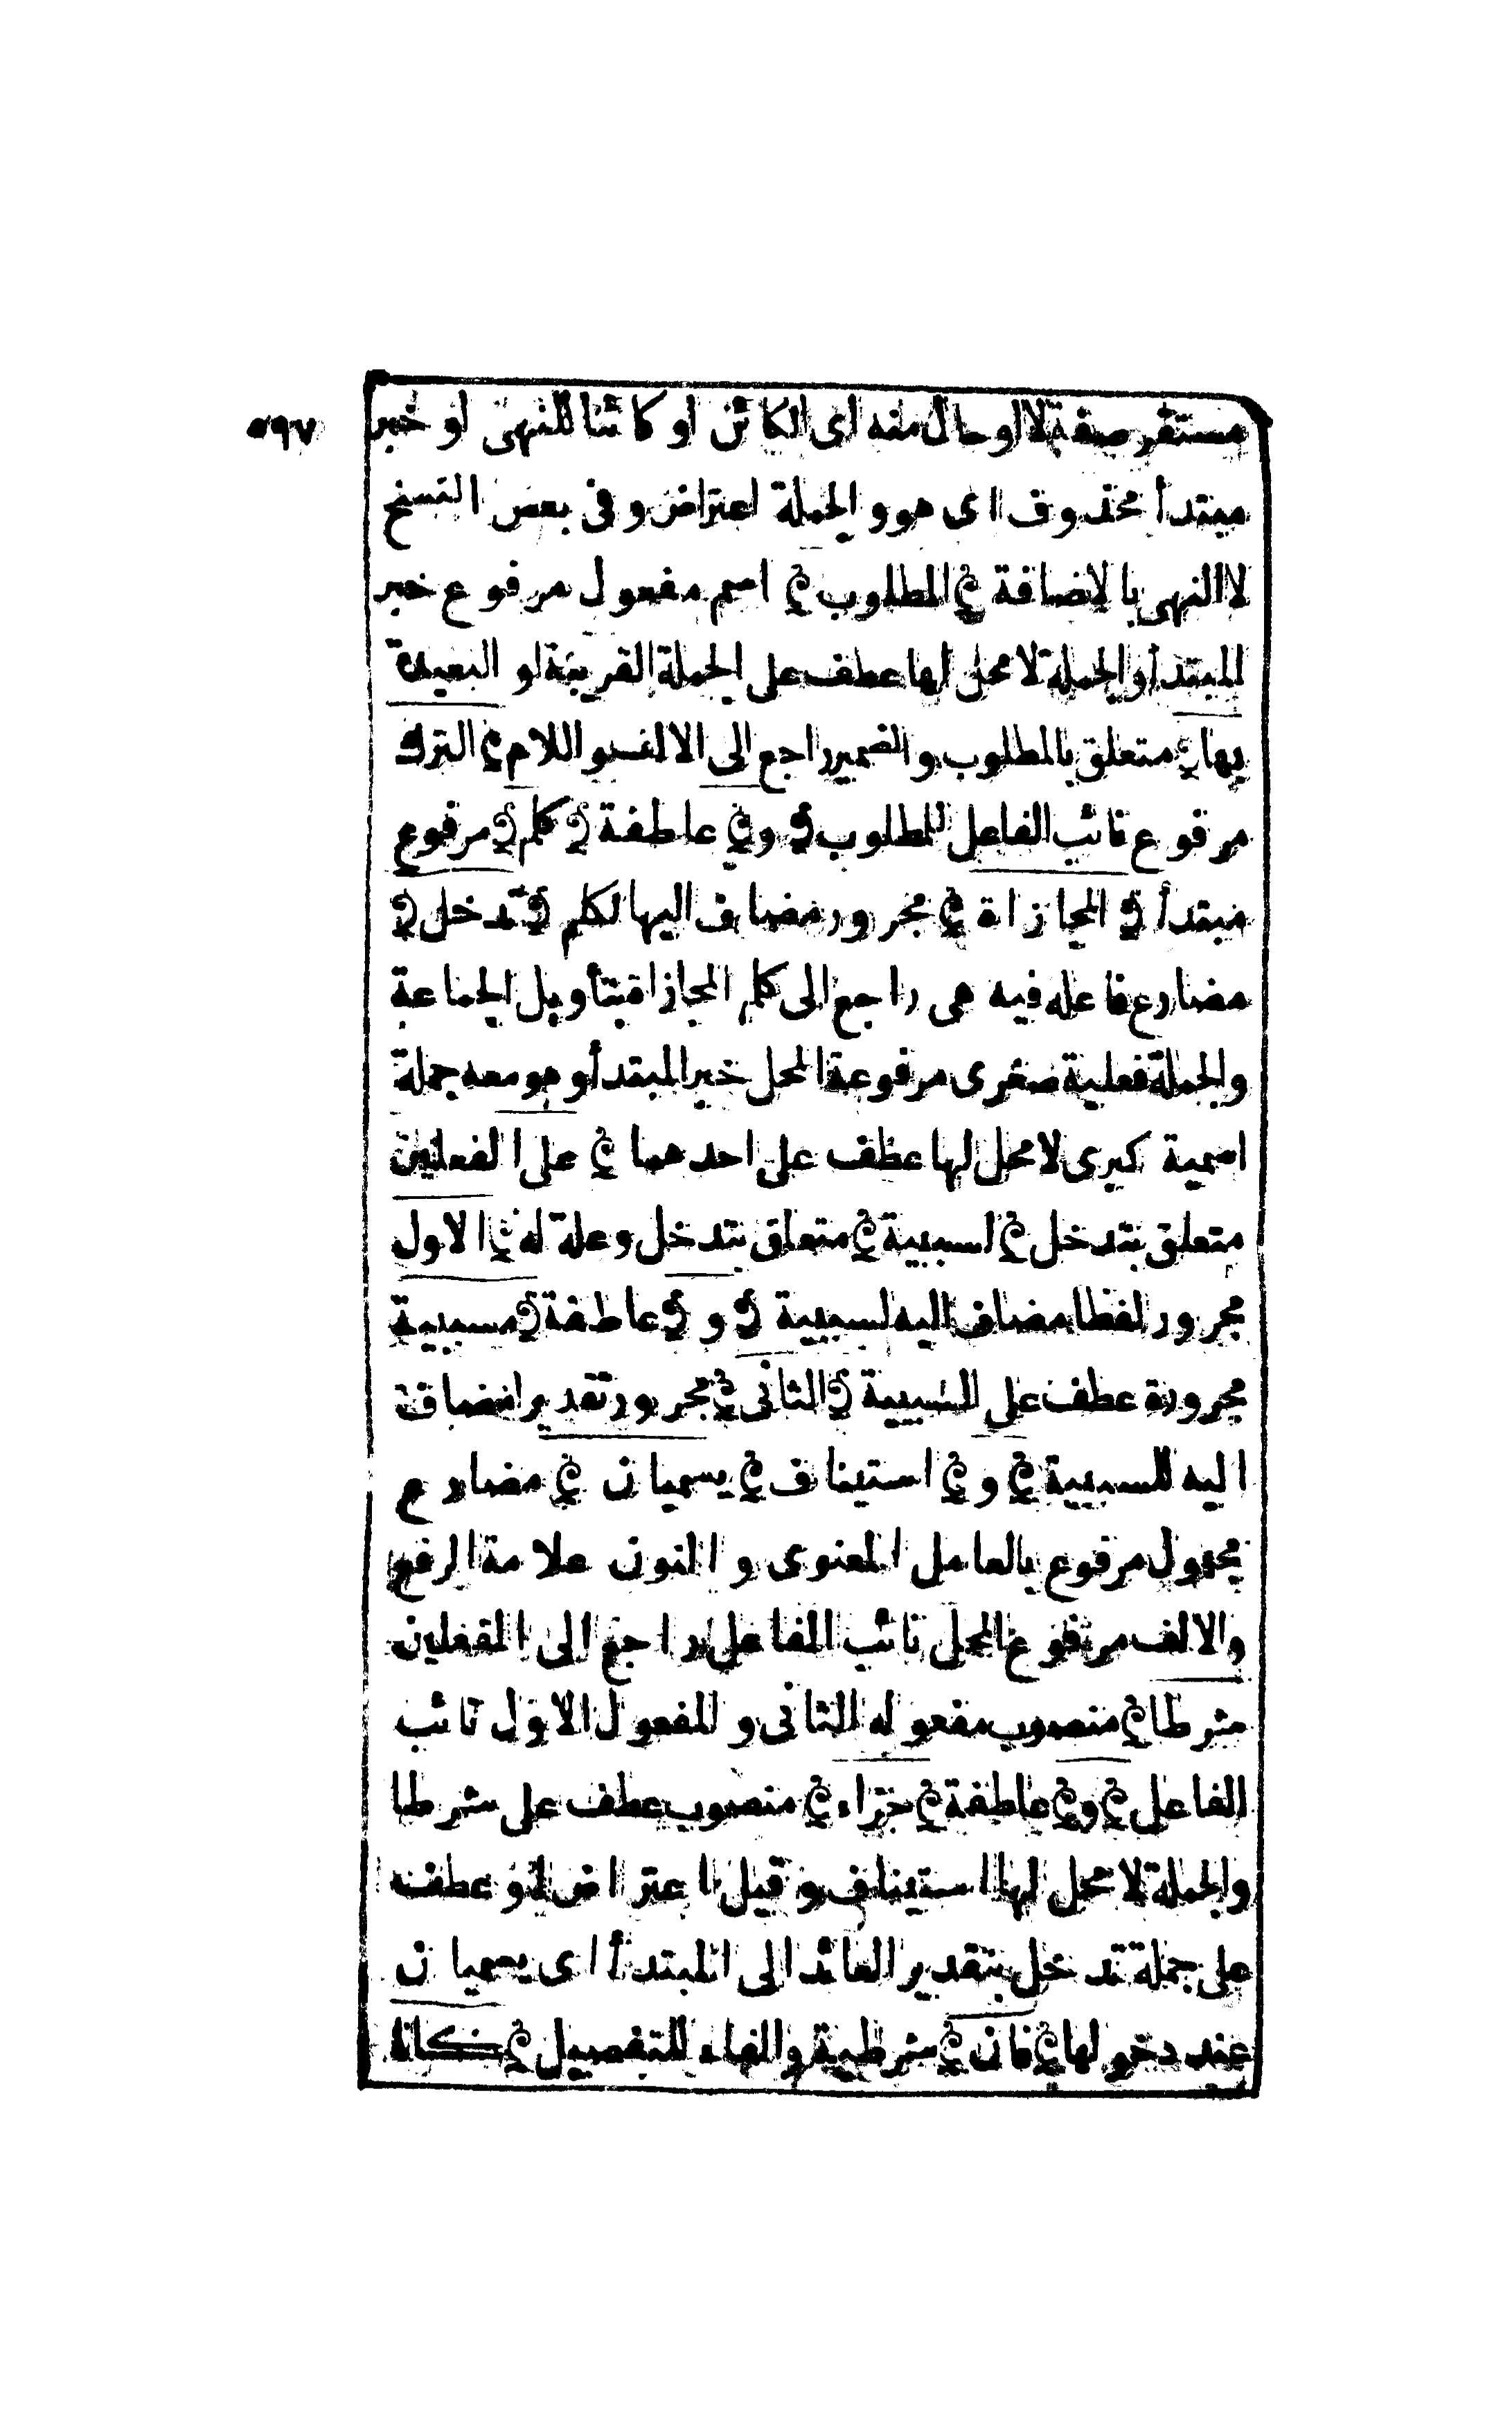 ٥٩٧
مستقر صفة لا او حال منه اى الكائن او كائنا للنهى او خبر
مبتدأ محذوف اى هو والجملة اعتراض وفى بعض النسخ
لا النهى بالاضافة المطلوب اسم مفعول مرفوع خبر
المبتدأ والجملة لا محل لها عطف على الجملة القريبة او البعيدة
بها متعلق بالمطلوب والضمير راجع الى الالف واللام الترك
مرفوع نائب الفاعل للمطلوب و عاطفة كلم مرفوع
مبتدأ المجازاة مجرور مضاف اليها لكلم تدخل
مضارع فاعله فيه هى راجع الى كلم المجازاة بتأويل الجماعة
والجملة فعلية صغرى مرفوعة المحل خبر المبتدأ وهو معه جملة
اسمية كبرى لا محل لها عطف على احدهما على الفعلين
متعلق بتدخل لسببية متعلق بتدخل وعلة له الاول
مجرور لفظا مضاف اليه لسببية و عاطفة مسببية
مجرورة عطف على السببية الثانى مجرور تقديرا مضاف
اليه للسببية و استيناف يسميان مضارع
مجهول مرفوع بالعامل المعنوى والنون علامة الرفع
والالف مرفوع المحل نائب الفاعل راجع الى الفعلين
شرطا منصوب مفعوله الثانى والمفعول الاول نائب
الفاعل و عاطفة جزاء منصوب عطف على شرطا
والجملة لا محل لها استيناف وقيل اعتراض او عطف
على جملة تدخل بتقدير العائد الى المبتدأ اى يسميان
عند دخولها فان شرطية والفاء للتفصيل كانا